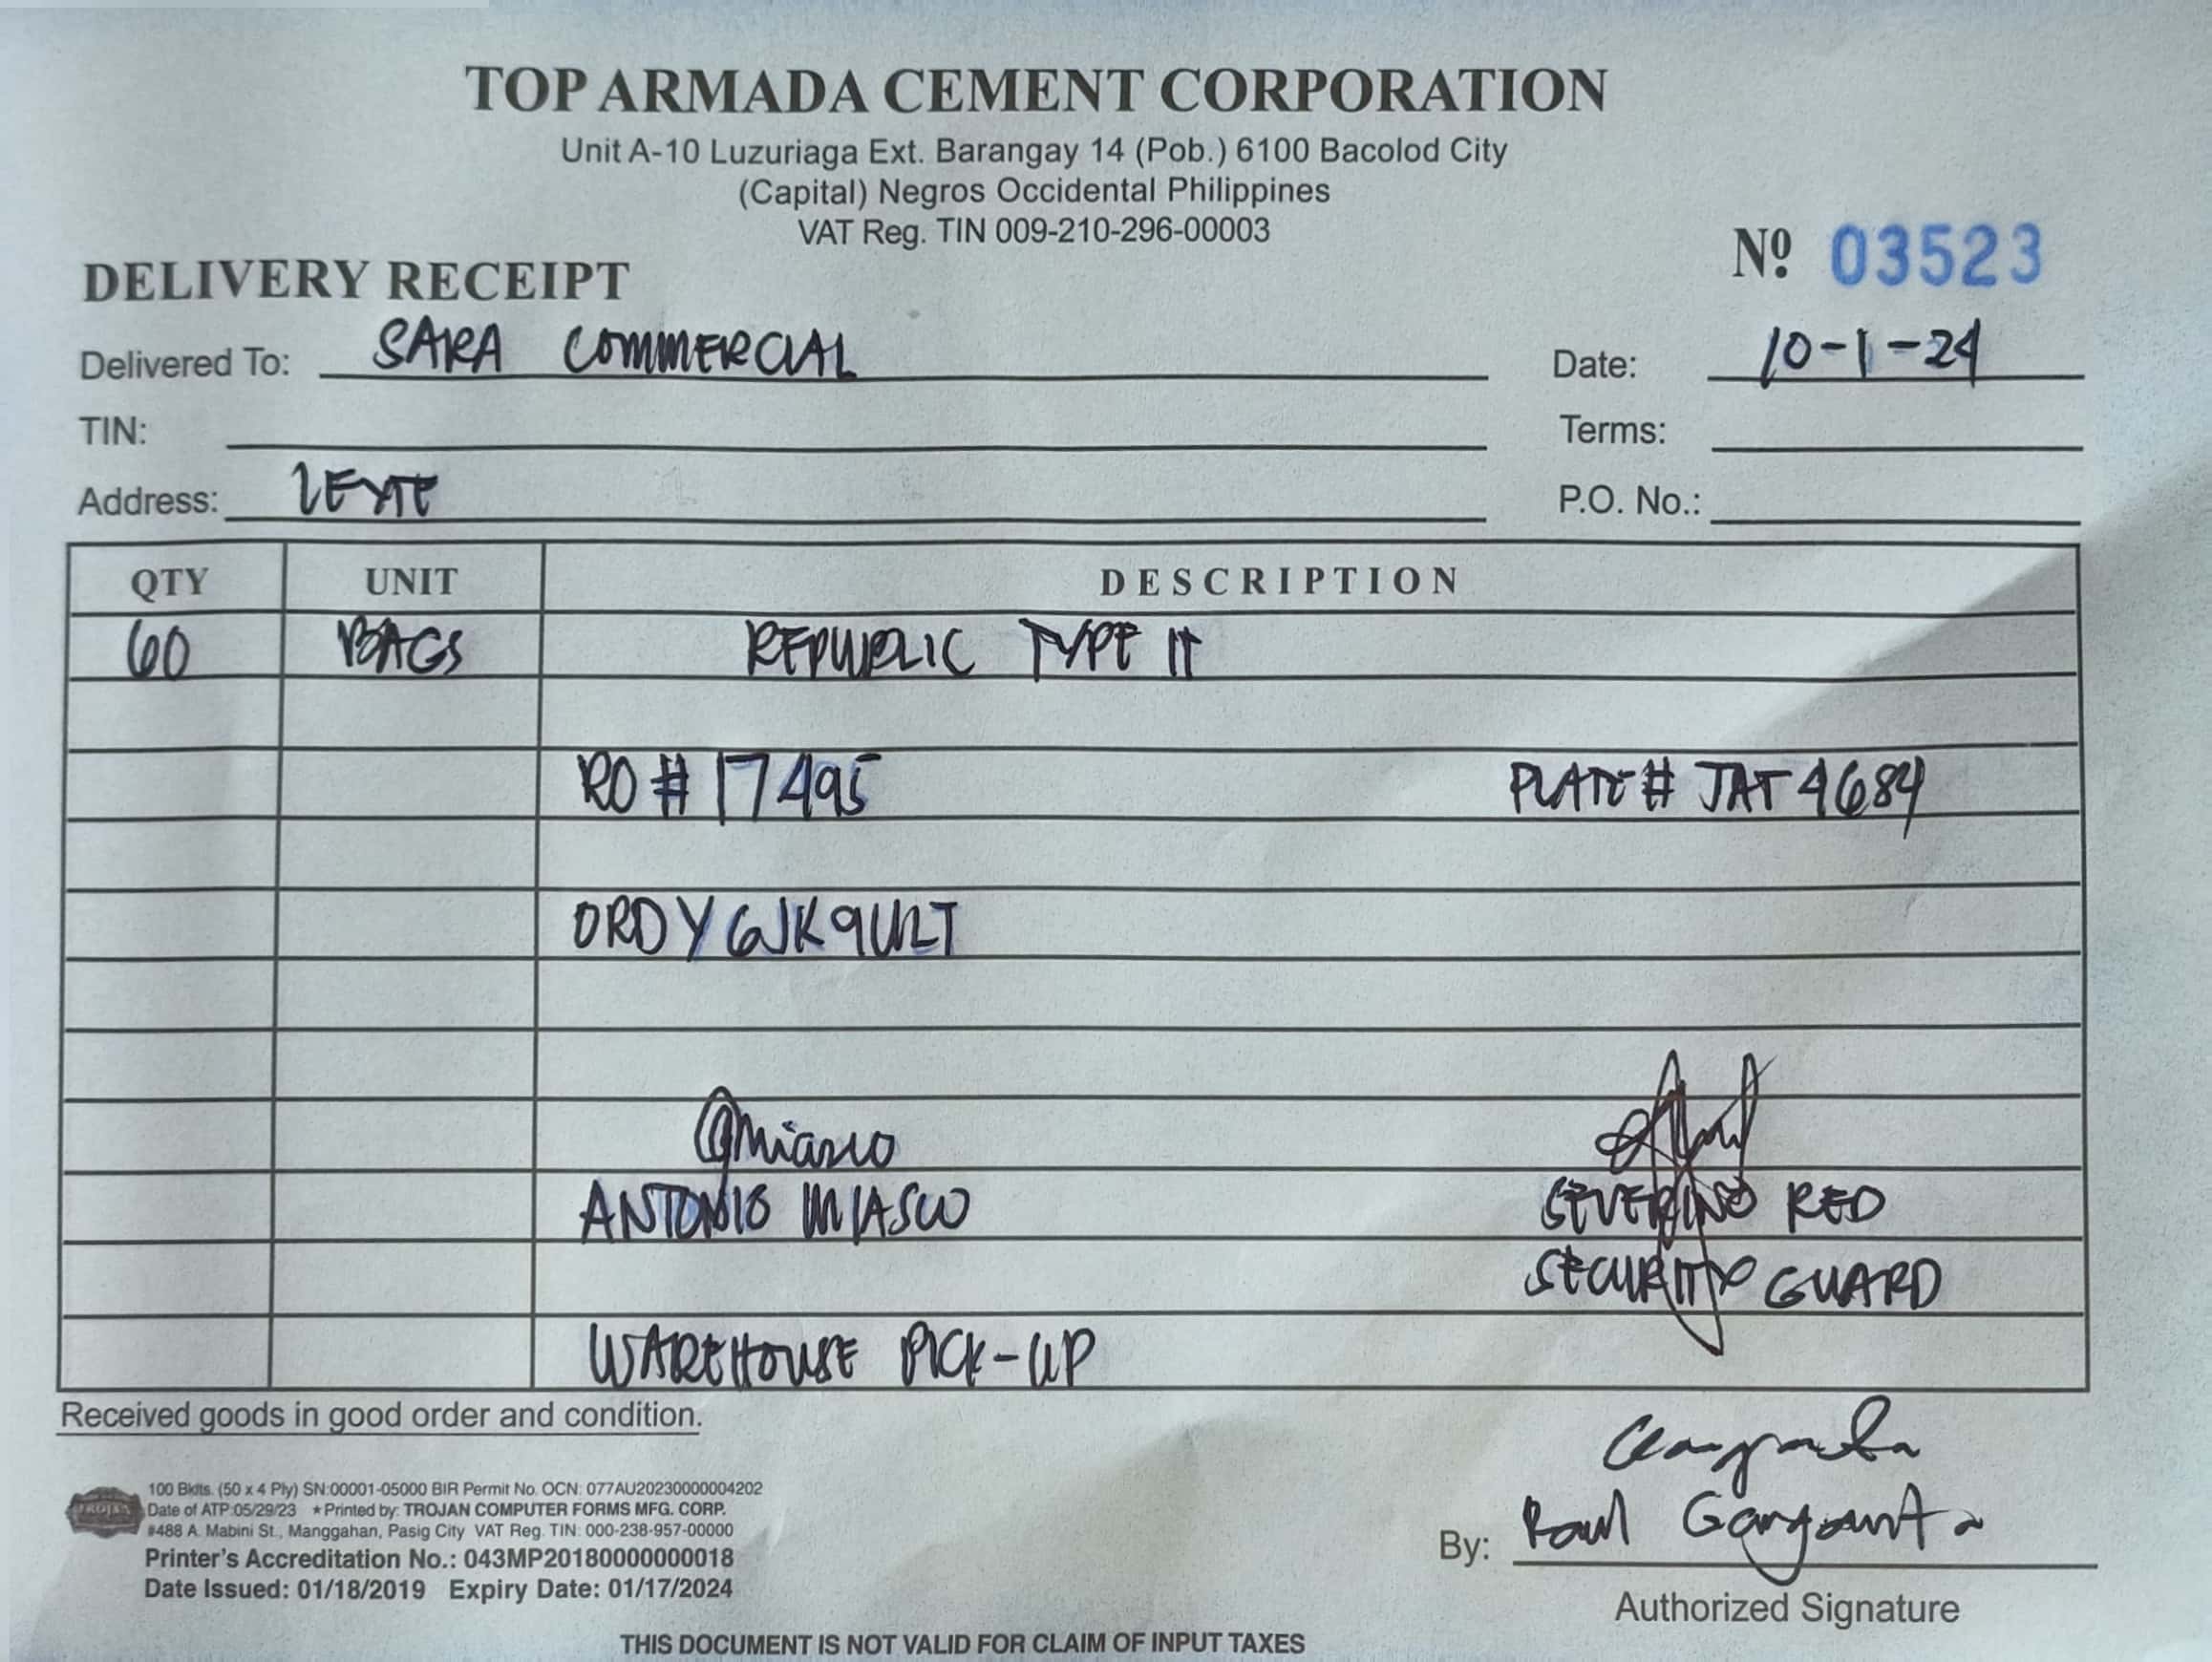 TOP ARMADA CEMENT CORPORATION
Unit A-10 Luzuriaga Ext. Barangay 14 (Pob.) 6100 Bacolod City
(Capital) Negros Occidental Philippines
VAT Reg. TIN 009-210-296-00003
Nº 03523
DELIVERY RECEIPT
Delivered To: SARA COMMERCIAL Date: 10-1-24
TIN: Terms:
Address: LEYTE P.O. No.:
QTY UNIT DESCRIPTION
60 BAGS REPUBLIC TYPE 1T
RO # 17495 PLATE # JAT 4684
ORDY6JK9U2LT
Amiasco
ANTONIO MIASCO SEVERINO RED
SECURITY GUARD
WAREHOUSE PICK-UP
Received goods in good order and condition.
100 Bklts. (50 x 4 Ply) SN:00001-05000 BIR Permit No. OCN: 077AU20230000004202
Date of ATP:05/29/23 ★Printed by: TROJAN COMPUTER FORMS MFG. CORP.
#488 A. Mabini St., Manggahan, Pasig City VAT Reg. TIN: 000-238-957-00000
Printer's Accreditation No.: 043MP20180000000018
Date Issued: 01/18/2019 Expiry Date: 01/17/2024
TROJAN
By: Raul Garganta
Authorized Signature
THIS DOCUMENT IS NOT VALID FOR CLAIM OF INPUT TAXES